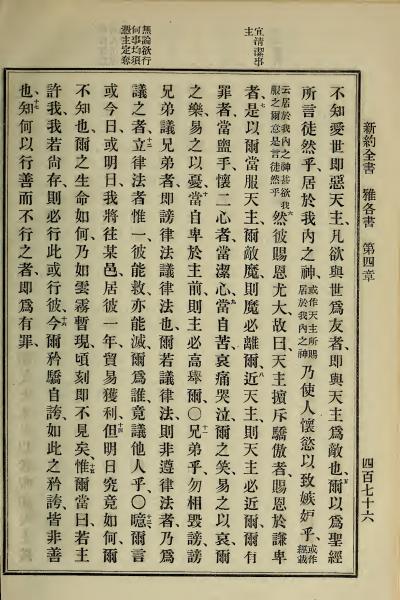 宜清潔事
主
無論欲行
何事均須
憑主定奪
新約全書 雅各書 第四章 四百七十六
不知愛世即惡天主、凡欲與世爲友者即與天主爲敵也、爾以爲聖經
所言徒然乎、居於我內之神、或作天主所賜居於我內之神乃使人懷慾以致嫉妒乎、或作經載
云居於我內之神甚欲我服之爾意是言徒然乎六然彼賜恩尤大、故曰天主擯斥驕傲者、賜恩於謙卑
者、七是以爾當服天主、爾敵魔則魔必離爾、八近天主、則天主必近爾、爾有
罪者、當盥手、懷二心者、當潔心、九當自苦哀痛哭泣、爾之笑、易之以哀、爾
之樂、易之以憂、十當自卑於主前、則主必高舉爾、〇十一兄弟乎、勿相毀謗、謗
兄弟議兄弟者、即謗律法議律法也、爾若議律法、則非遵律法者、乃爲
議之者、十二立律法者惟一、彼能救亦能滅、爾爲誰、竟議他人乎、〇十三噫、爾言
或今日、或明日、我將往某邑、居彼一年、貿易獲利、十四但明日究竟如何、爾
不知也、爾之生命如何、乃如雲霧暫現、頃刻即不見矣、十五惟爾當曰、若主
許我、我若尚存、則必行此或行彼、十六今爾矜驕自誇、如此之矜誇、皆非善
也、十七知何以行善而不行之者、即爲有罪、